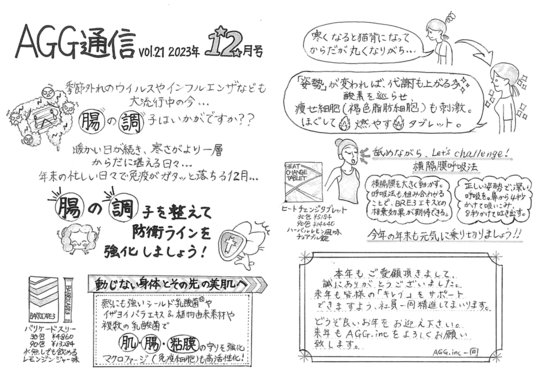 AGG通信 vol.21 2023年 12月号
季節外れのウイルスやインフルエンザなども
大流行中の今…
腸の調子はいかがですか??
暖かい日が続き、寒さがより一層
からだに堪える日々…
年末の忙しい日々で免疫がガタッと落ちる12月…
腸の調子を整えて
防衛ラインを
強化しましょう!
動じない身体とその先の美肌へ
熱にも強いシールド乳酸菌®や
イザヨイバラエキス&植物由来素材や
複数の乳酸菌で
肌・腸・粘膜の守りを強化
マクロファージ(免疫細胞)も高活性化!
BARRICADE3
バリケードスリー
30包
90包
水無しでも飲める
レモンジンジャー味
寒くなると猫背になって
からだが丸くなりがち…
「姿勢」が変われば、代謝も上がる
酸素を巡らせ、
痩せ細胞(褐色脂肪細胞)も刺激。
ほぐして燃やすタブレット。
舐めながら、Let's challenge!
横隔膜呼吸法
HEAT CHANGE TABLET
ヒートチェンジタブレット
30包
90包
ハーバルレモン風味
チュアブル錠
横隔膜も大きく動かす。
呼吸法も組み合わせる
ことで、BRE3エキスとの
相乗効果が期待できる。
正しい姿勢で深い
呼吸を。鼻から4秒
かけて吸い込み、
8秒かけて吐き出す。
今年の年末も元気に乗りきりましょう!!
本年もご愛顧頂きまして、
誠にありがとうございました。
来年も皆様の「キレイ」をサポート
できますよう、社員一同精進してまいります。
どうぞ良いお年をお迎え下さい。
来年もAGG.incをよろしくお願い
致します。
AGG.inc一同